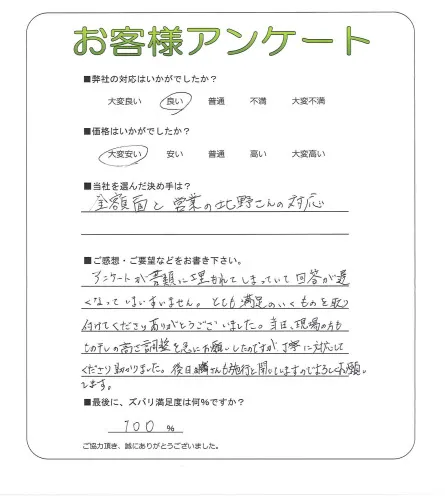 お客様アンケート
■弊社の対応はいかがでしたか?
大変良い 良い 普通 不満 大変不満
■価格はいかがでしたか?
大変安い 安い 普通 高い 大変高い
■当社を選んだ決め手は?
金額面と営業の北野さんの対応
■ご感想・ご要望などをお書き下さい。
アンケートが書類に埋もれてしまっていて回答が遅
くなってしまいすいません。とても満足のいくものを取り
付けてくださりありがとうございました。当日、現場の方も
の高さ調整を急にお願いしたのですが丁寧に対応して
くださり助かりました。後日 さんも施行と聞してますのでよろしくお願い
します。
■最後に、ズバリ満足度は何%ですか?
100 %
ご協力頂き、誠にありがとうございました。